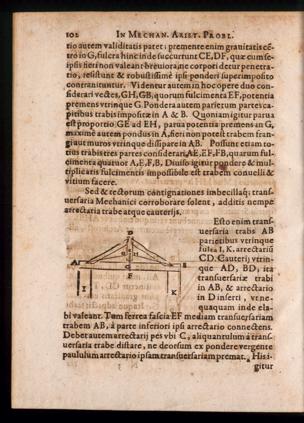 102 IN MECHAN. ARIST. PROBL.
tio autem validitatis patet; premente enim grauitatis cẽ-
tro in G, fulcra hinc inde succurrunt CE, DF, quæ cum se-
ipsis fieri non valeant breuiora, nec corpori detur penetra-
tio, resistunt & robustissimè ipsi ponderi superimposito
contranituntur. Videntur autem in hoc opere duo con-
siderari vectes, GH, GB, quorum fulcimenta EF, potentia
premens vtrinque G. Pondera autem parietum partes ca-
pitibus trabis impositæ in A & B. Quoniam igitur parua
est proportio GE ad EH, parua potentia premens in G,
maximè autem pondus in A, fieri non potest trabem fran-
gi aut muros vtrinque dissipare in AB. Possunt etiam to-
tius trabis tres partes considerari, AE, EF, FB, quarum ful-
cimenta quatuor A, E, F, B. Diuiso igitur pondere & mul-
tiplicatis fulcimentis impossibile est trabem conuelli &
vitium facere.
Sed & tectorum contignationes imbecillaq; trans-
uersaria Mechanici corroborare solent, additis nempe
arrectaria trabe atque cauterijs.
Esto enim trans-
uersaria trabs AB
parietibus vtrinque
fulta I, K. arrectariũ
CD. Cauterij vtrin-
que AD, BD, ita
transuersariæ trabi
in AB, & arrectario
in D inserti, vt ne-
quaquam inde ela-
bi valeant. Tum ferrea fascia EF mediam transuersariam
trabem AB, à parte inferiori ipsi arrectario connectens.
Debet autem arrectarij pes vbi C, aliquantulum à trans-
uersaria trabe distare, ne deorsum ex pondere vergente
paululum arrectario ipsam transuersariam premat. His i-
gitur
A
D
B
C
E
F
I
K